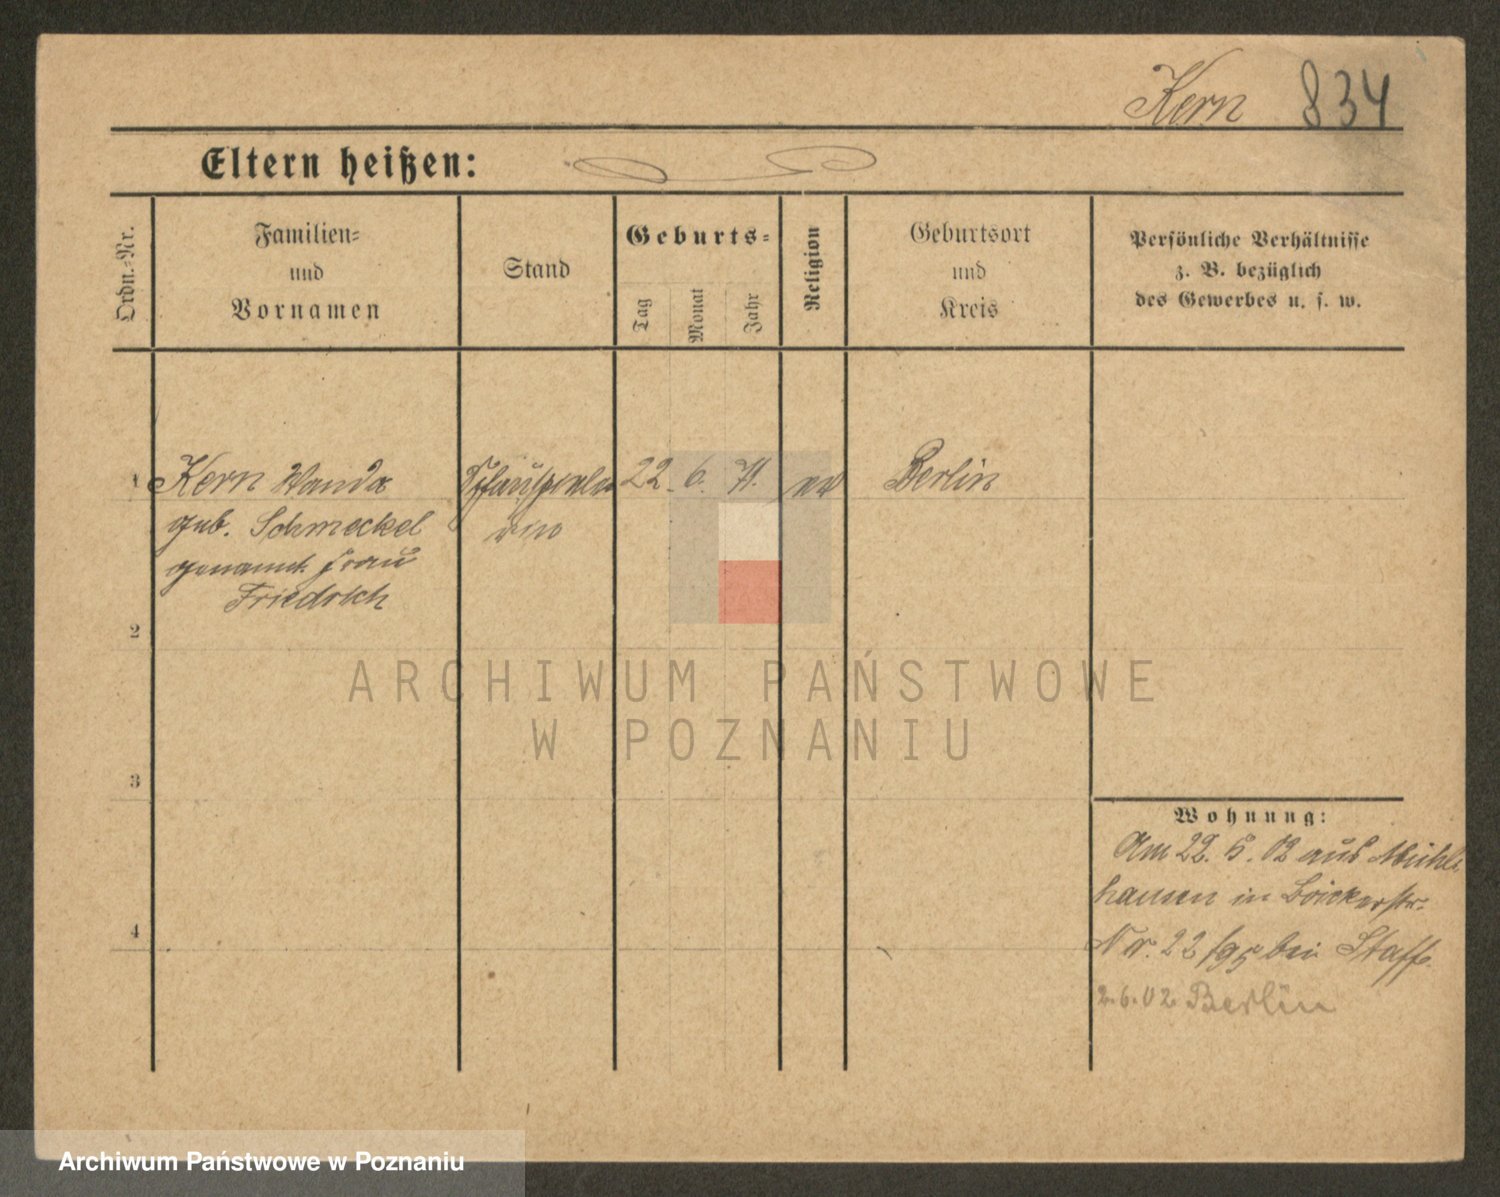 Kern 834
Eltern heißen:
Ordn.-Nr.
Familien-
und
Vornamen
Stand
Geburts-
Tag
Monat
Jahr
Religion
Geburtsort
und
Kreis
Persönliche Verhältnisse
z. B. bezüglich
des Gewerbes u. s. w.
1 Kern Wanda Schauspiele 22. 6. 71. ev Berlin
geb. Schmeckel rin
genannt Frau
Friedrich
2
3
4
ARCHIWUM PAŃSTWOWE
W POZNANIU
Wohnung:
Am 22. 5. 02 aus Mühl
hausen in
Nr. 22/95 bei
2.6.02 Berlin
Archiwum Państwowe w Poznaniu